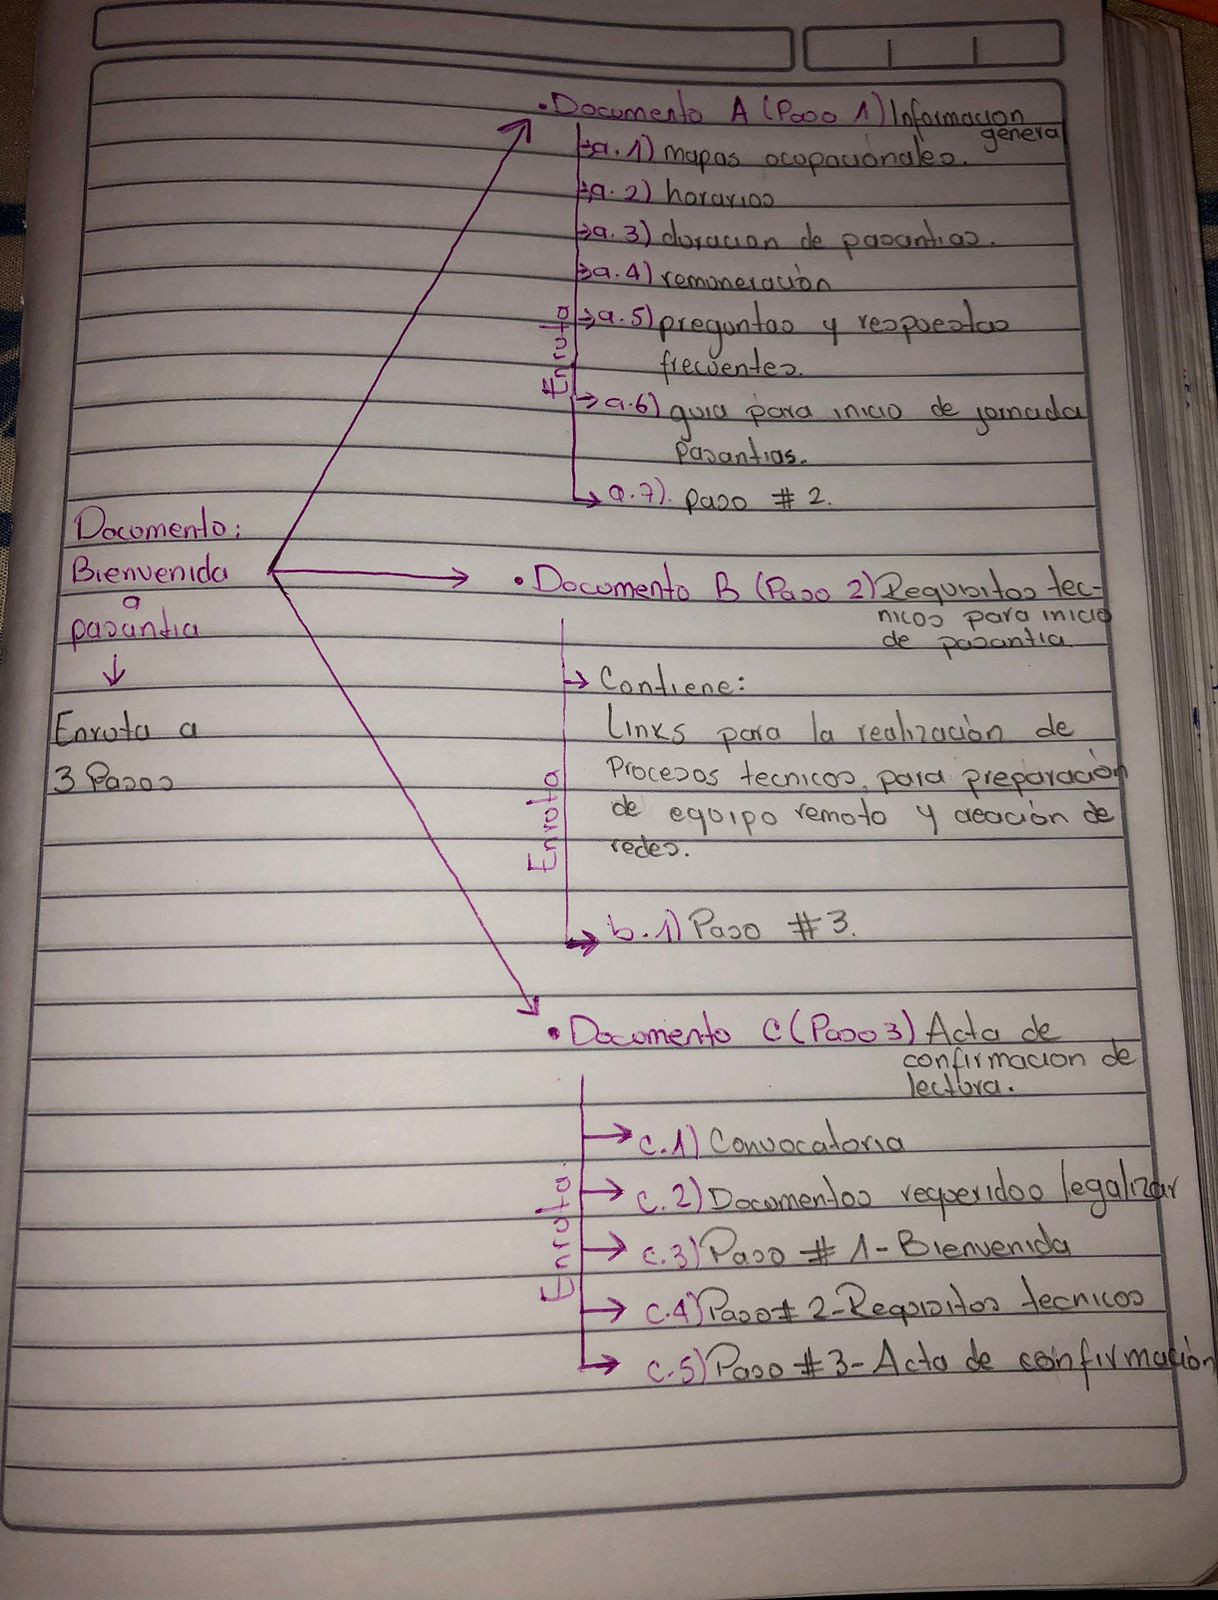 • Documento A (Paso 1) Informacion
genera
a. 1) mapas ocupacionales.
a. 2) horarios
a. 3) duracion de pasantias.
a. 4) remuneración
a. 5) preguntas y respuestas
frecuentes.
a.6) guia para inicio de jornada
pasantias.
a.7). paso # 2.
Enruta
Documento:
Bienvenida
a
pasantia
↓
Enruta a
3 Pasos
• Documento B (Paso 2) Requisitos tec-
nicos para inicio
de pasantia
Contiene:
Links para la realización de
Procesos tecnicos, para preparación
de equipo remoto y creación de
redes.
b.1) Paso #3.
Enruta
• Documento C (Paso 3) Acta de
confirmacion de
lectura.
c.1) Convocatoria
c.2) Documentos requeridos legalizar
c.3) Paso # 1 - Bienvenida
c.4) Paso # 2 - Requisitos tecnicos
c.5) Paso #3 - Acta de confirmación
Enruta.